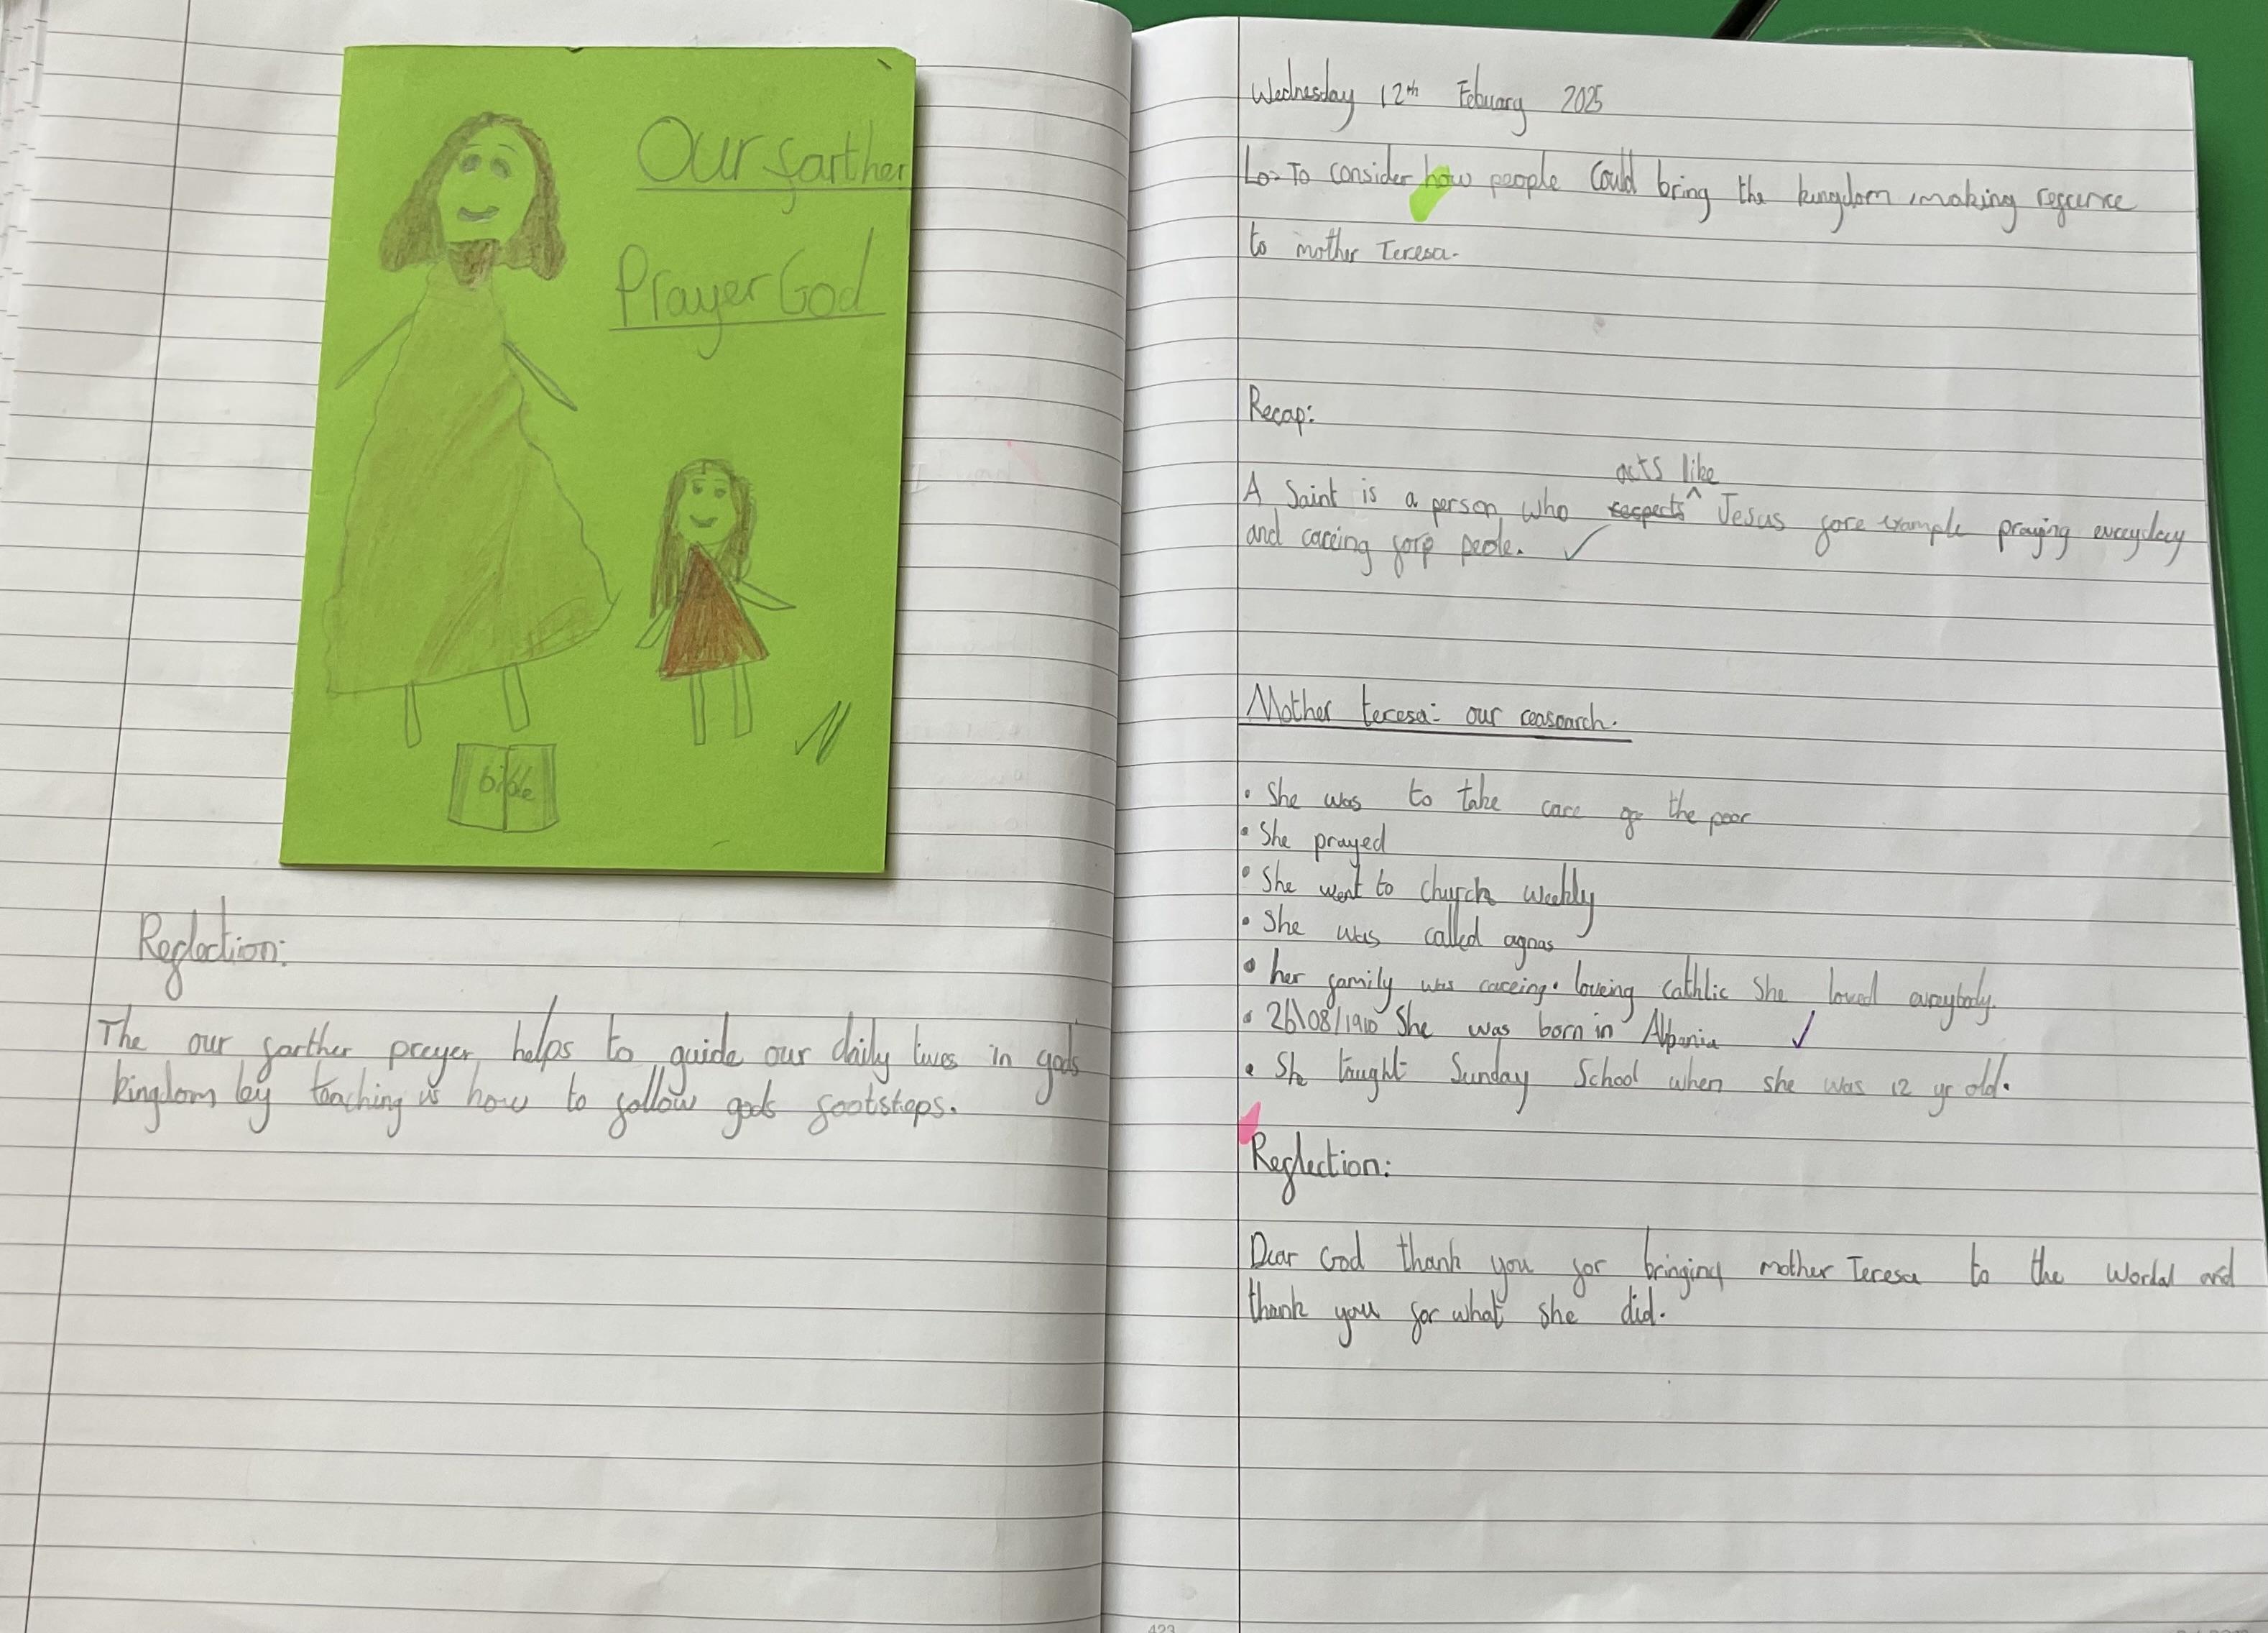 Our farther
Prayer God
bible
Reflection:
The our farther preyer helps to guide our daily lives in gods
kingdom by teaching us how to follow gods footsteps.
Wednesday 12th Febuary 2025
Lo:- To consider how people could bring the kingdom, making refernce
to mother Teresa.
Recap:
acts like
A Saint is a person who respects ^ Jesus fore example praying everyday
and careing for peole.
Mother teresa: our reasearch.
• She was to take care of the poor
• She prayed
• She went to church weekly
• She was called agnas
• her family was careing. loveing cathlic She loved everybody.
• 26\08/1910 She was born in Albania
• She taught Sunday School when she was 12 yr old.
Reflection:
Dear God thank you for bringing mother Teresa to the World and
thank you for what she did.
423